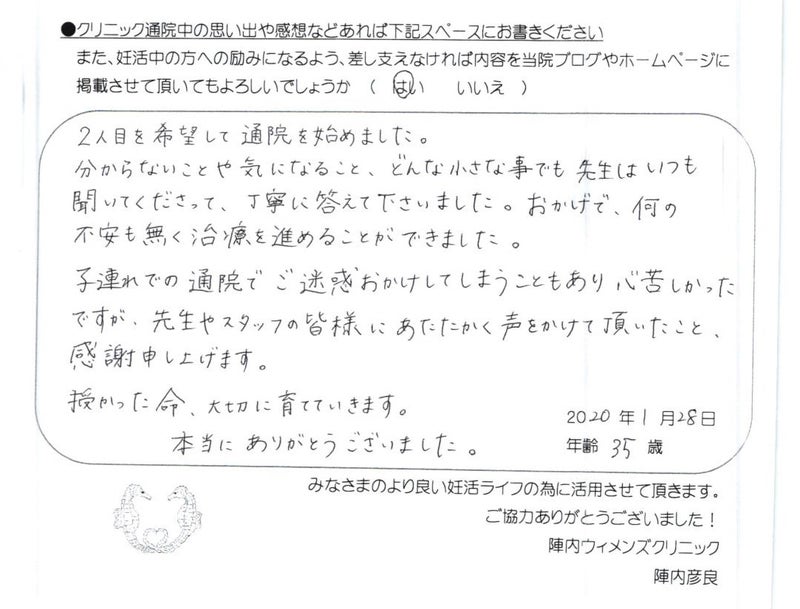 ●クリニック通院中の思い出や感想などあれば下記スペースにお書きください
また、妊活中の方への励みになるよう、差し支えなければ内容を当院ブログやホームページに
掲載させて頂いてもよろしいでしょうか （ はい いいえ ）
2人目を希望して通院を始めました。
分からないことや気になること、どんな小さな事でも先生はいつも
聞いてくださって、丁寧に答えて下さいました。おかげで、何の
不安も無く治療を進めることができました。
子連れでの通院でご迷惑おかけしてしまうこともあり心苦しかった
ですが、先生やスタッフの皆様にあたたかく声をかけて頂いたこと、
感謝申し上げます。
授かった命、大切に育てていきます。
本当にありがとうございました。
2020年1月28日
年齢 35 歳
みなさまのより良い妊活ライフの為に活用させて頂きます。
ご協力ありがとうございました！
陣内ウィメンズクリニック
陣内彦良